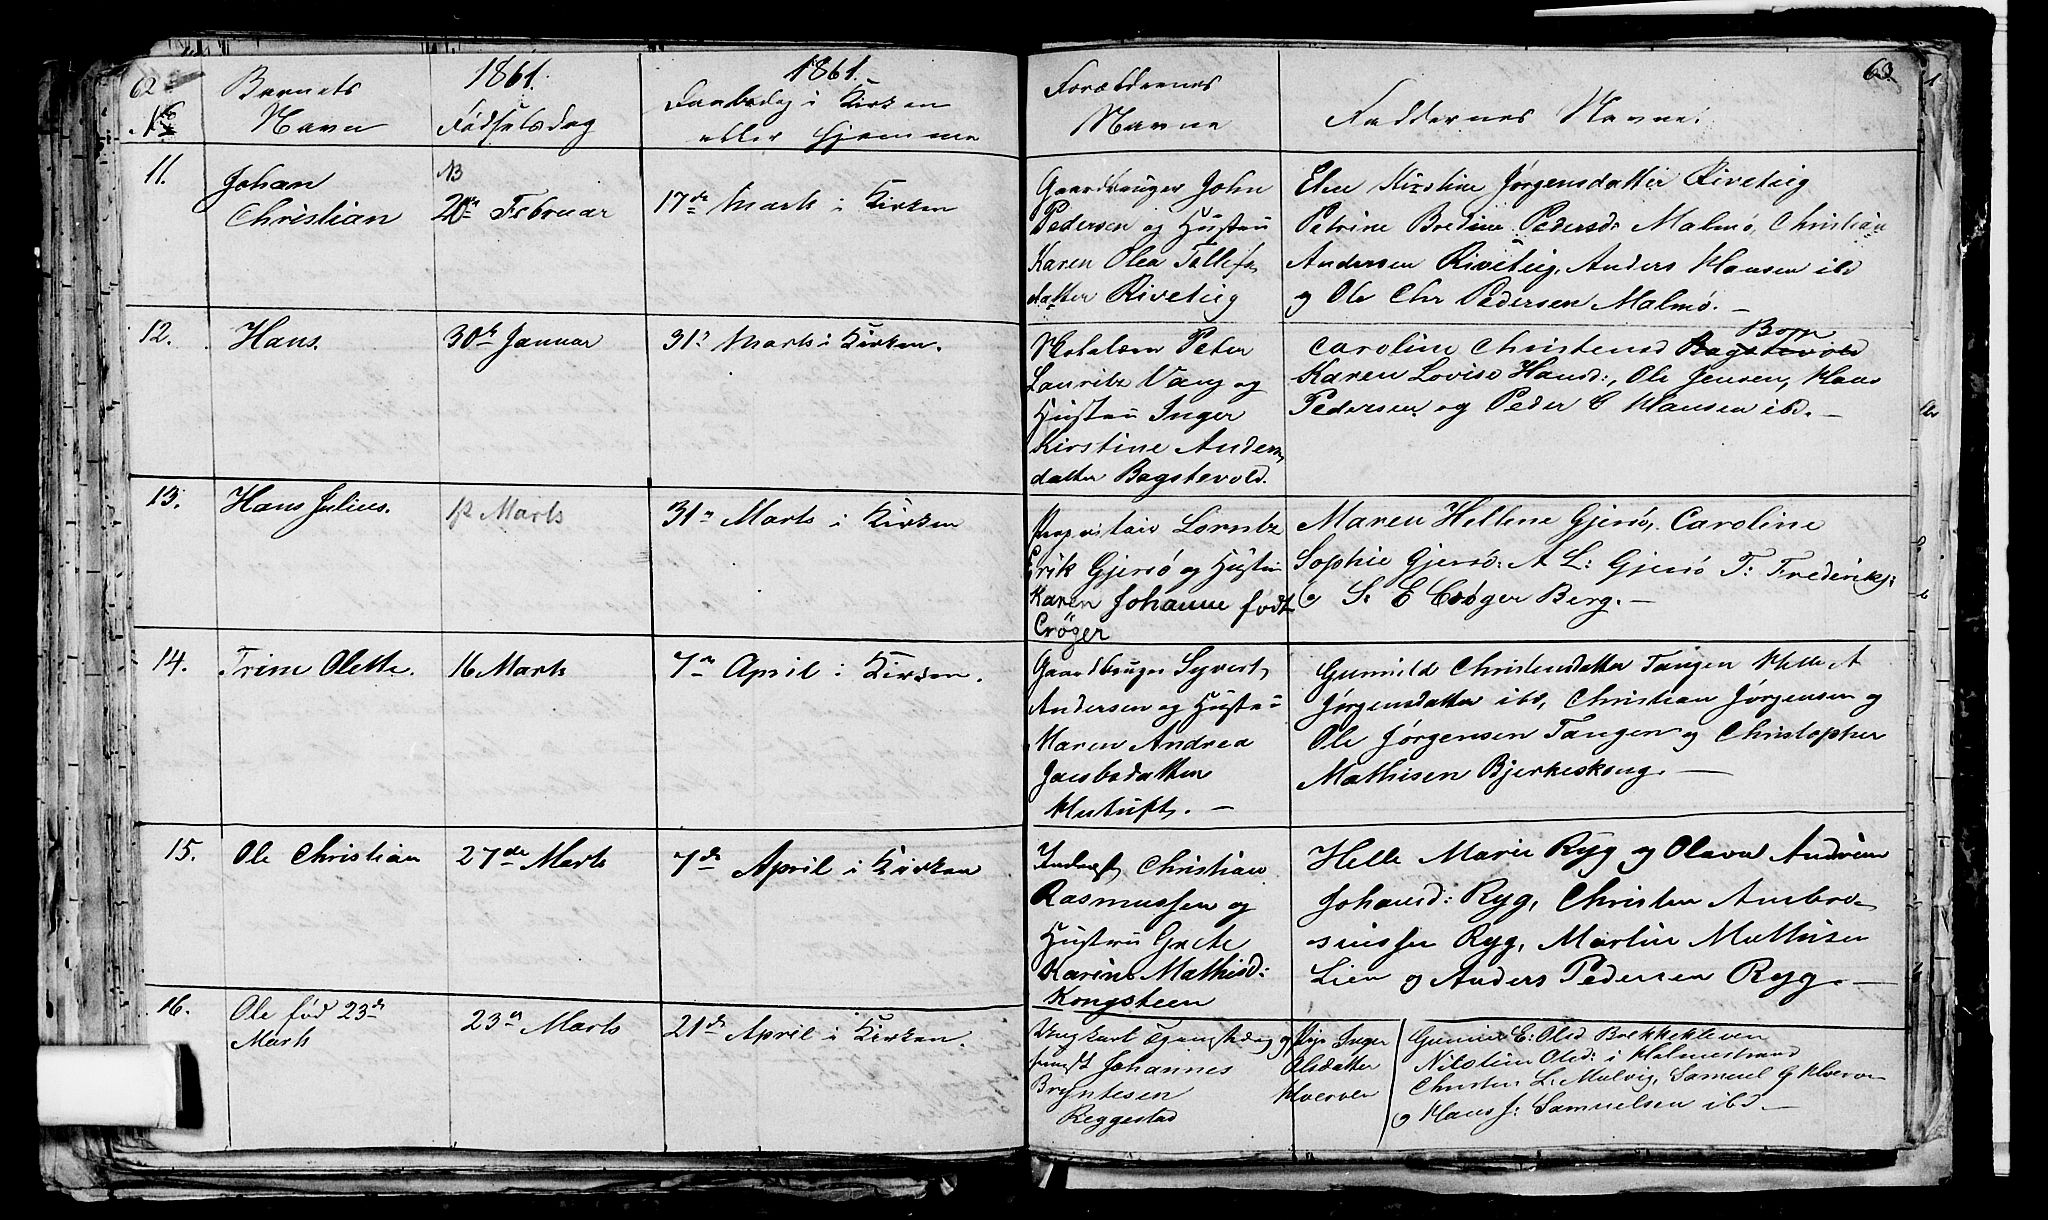 62
1861.
1861.
No
Barnets
Navn
Fødselsdag
Daabsdag i Kirken
eller hjemme
11.
Johan
Christian
NB
20de Februar
17de Marts i Kirken
12.
Hans.
30te Januar
31te Marts i Kirken.
13.
Hans Julius.
12 Marts
31te Marts i Kirken
14.
Trine Olette.
16 Marts
7de April i Kirken.
15.
Ole Christian
27de Marts
7de April i Kirken
16.
Ole fød 23de
Marts
23de Marts
21de April i Kirken.
63.
Forældrenes
Navne
Faddernes Navne:
Gaardbruger John
Pedersen og Hustru
Karen Olea Tollefs
datter Rivetrig
Elen Kirstine Jørgensdatter Rivetrig
Petrine Bredine Pedersd: Malmø, Christian
Andersen Rivetrig, Anders Hansen ibd
og Ole Chr Pedersen Malmø. —
Peter
Lauritz Vang og
Hustru Inger
Kirstine Anders
datter Bagstevold.
Borre
Caroline Christensd Bagstevold
Karen Lovise Hansd:, Ole Jensen, Hans
Pedersen og Peder C Hansen ibd. —
Proprietair Lorntz
Erik Gjersø og Hustru
Karen Johanne født
Crøger
Maren Hellene Gjersø, Caroline
Sophie Gjersø: A L: Gjersø T: Frederiks:
S. E Crøger Berg. —
Gaardbruger Syvert
Andersen og Hustru
Maren Andrea
Jacobsdatter
. —
Gunnild Christensdatter Tangen Helle A
Jørgensdatter ibd, Christian Jørgensen og
Ole Jørgensen Tangen og Christopher
Mathisen Bjerkeskoug. —
Inderst Christian
Rasmussen og
Hustru Grete
Karine Mathisd:
Kongsteen
Helle Marie Ryg og Olava Andrine
Johansd: Ryg, Christen Ambro-
siussen Ryg, Martin Mathisen
Lien og Anders Pedersen Ryg. —
Ungkarl og Pige Inger
Johannes Olsdatter
Bryntesen Klverven
Reggestad
Gunnil E: Olsd Bækkekleven
Nilstine Olsd: i Holmestrand
Christen L: Mulvig, Samuel G Klverven
og Hans J: Samuelsen ibd —